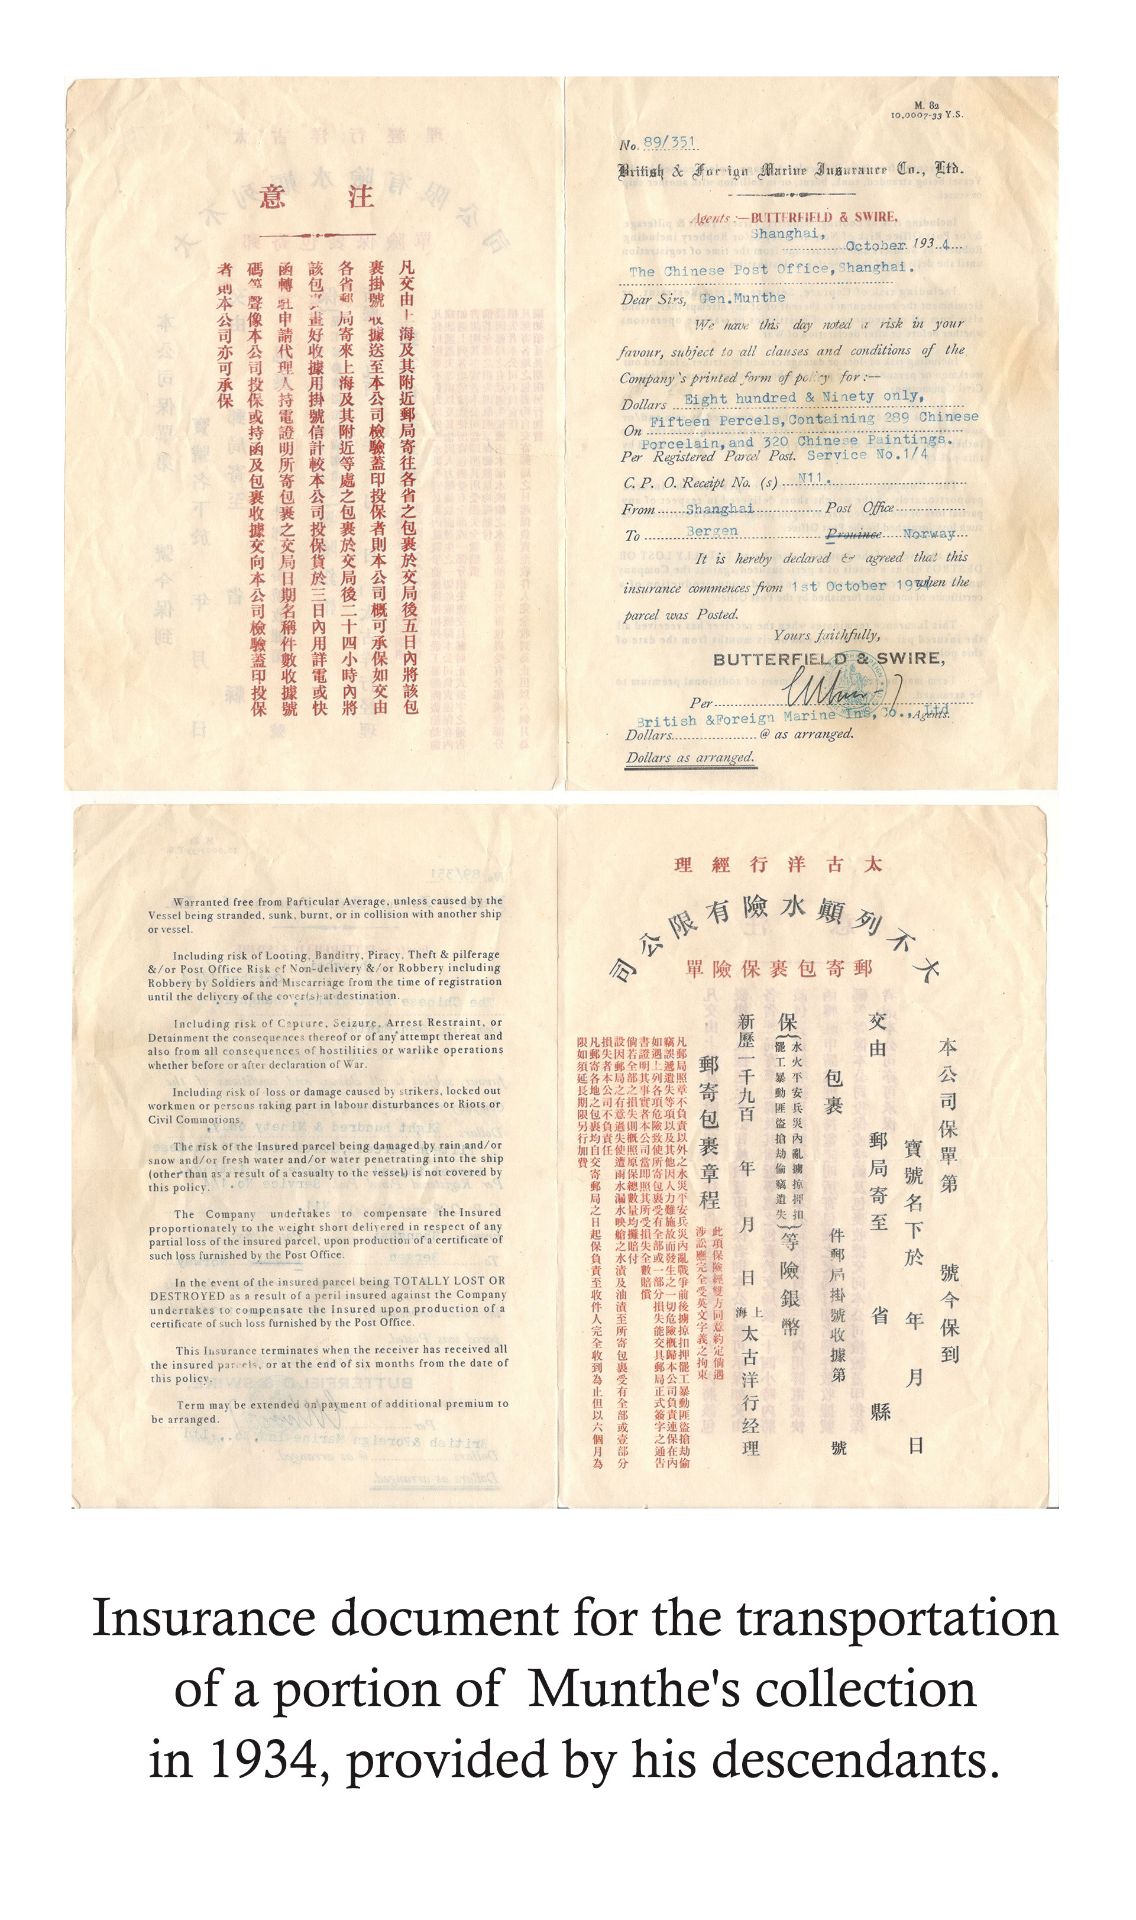 意 注
凡交由上海及其附近郵局寄往各省之包裹於交局後五日內將該包
裹掛號收據送至本公司檢驗蓋印投保者則本公司概可承保如交由
各省郵局寄來上海及其附近等處之包裹於交局後二十四小時內將
該包裹畫好收據用掛號信計較本公司投保貨於三日內用詳電或快
函轉駐申請代理人持電證明所寄包裹之交局日期名稱件數收據號
碼等聲像本公司投保或持函及包裹收據交向本公司檢驗蓋印投保
者則本公司亦可承保
M. 82
10,0007-33 Y.S.
No. 89/351
British & Foreign Marine Insurance Co., Ltd.
Agents:—BUTTERFIELD & SWIRE,
Shanghai,
October 1934
The Chinese Post Office, Shanghai.
Dear Sirs, Gen.Munthe
We have this day noted a risk in your
favour, subject to all clauses and conditions of the
Company's printed form of policy for:—
Dollars Eight hundred & Ninety only,
On Fifteen Percels, Containing 289 Chinese
Porcelain, and 320 Chinese Paintings.
Per Registered Parcel Post. Service No.1/4
C. P. O. Receipt No. (s) N11.
From Shanghai Post Office
To Bergen Province Norway
It is hereby declared & agreed that this
insurance commences from 1st October 1934 when the
parcel was Posted.
Yours faithfully,
BUTTERFIELD & SWIRE,
Per
British &Foreign Marine Ins, Co., Ltd Agents.
Dollars @ as arranged.
Dollars as arranged.
Warranted free from Particular Average, unless caused by the
Vessel being stranded, sunk, burnt, or in collision with another ship
or vessel.
Including risk of Looting, Banditry, Piracy, Theft & pilferage
&/or Post Office Risk of Non-delivery &/or Robbery including
Robbery by Soldiers and Miscarriage from the time of registration
until the delivery of the cover(s) at destination.
Including risk of Capture, Seizure, Arrest Restraint, or
Detainment the consequences thereof or of any attempt thereat and
also from all consequences of hostilities or warlike operations
whether before or after declaration of War.
Including risk of loss or damage caused by strikers, locked out
workmen or persons taking part in labour disturbances or Riots or
Civil Commotions.
The risk of the Insured parcel being damaged by rain and/or
snow and/or fresh water and/or water penetrating into the ship
(other than as a result of a casualty to the vessel) is not covered by
this policy.
The Company undertakes to compensate the Insured
proportionately to the weight short delivered in respect of any
partial loss of the insured parcel, upon production of a certificate of
such loss furnished by the Post Office.
In the event of the insured parcel being TOTALLY LOST OR
DESTROYED as a result of a peril insured against the Company
undertakes to compensate the Insured upon production of a
certificate of such loss furnished by the Post Office.
This Insurance terminates when the receiver has received all
the insured parcels, or at the end of six months from the date of
this policy.
Term may be extended on payment of additional premium to
be arranged.
理經行洋古太
司公限有險水顚列不大
單險保裹包寄郵
本公司保單第 號今保到
寶號名下於 年 月 日
交由 郵局寄至 省 縣
包裹 件郵局掛號收據第 號
保 水火平安兵災內亂擄掠押扣
罷工暴動匪盜搶劫偷竊遺失 等險銀幣
新歷一千九百 年 月 日 上海 太古洋行经理
郵寄包裹章程 此項保險經雙方同意約定倘遇
涉訟應完全受英文字義之拘束
凡郵局照章不負責以外之水災平安兵災內亂戰爭前後擄掠扣押罷工暴動匪盜搶劫偷
竊誤遞遺失等項以及其他因人力難施故而發生之一切危險概歸本公司負責連保在內
如遇上列各項危險致使所寄包裹受有全部或一部分損失能交具郵局正式簽字之通告
書證明其事實者本公司當即照其所受損失全數賠償
倘若全部之損失則概照原保總數量均攤賠付
設因郵局之有意過失使遭雨水漏水映艙之水漬及油漬至所寄包裹受有全部或壹部分
損失者本公司不負責任
凡郵寄各地之包裹均自交寄郵局之日起保負責至收件人完全收到為止但以六個月為
限如須延長期限另行加費
Insurance document for the transportation
of a portion of Munthe's collection
in 1934, provided by his descendants.